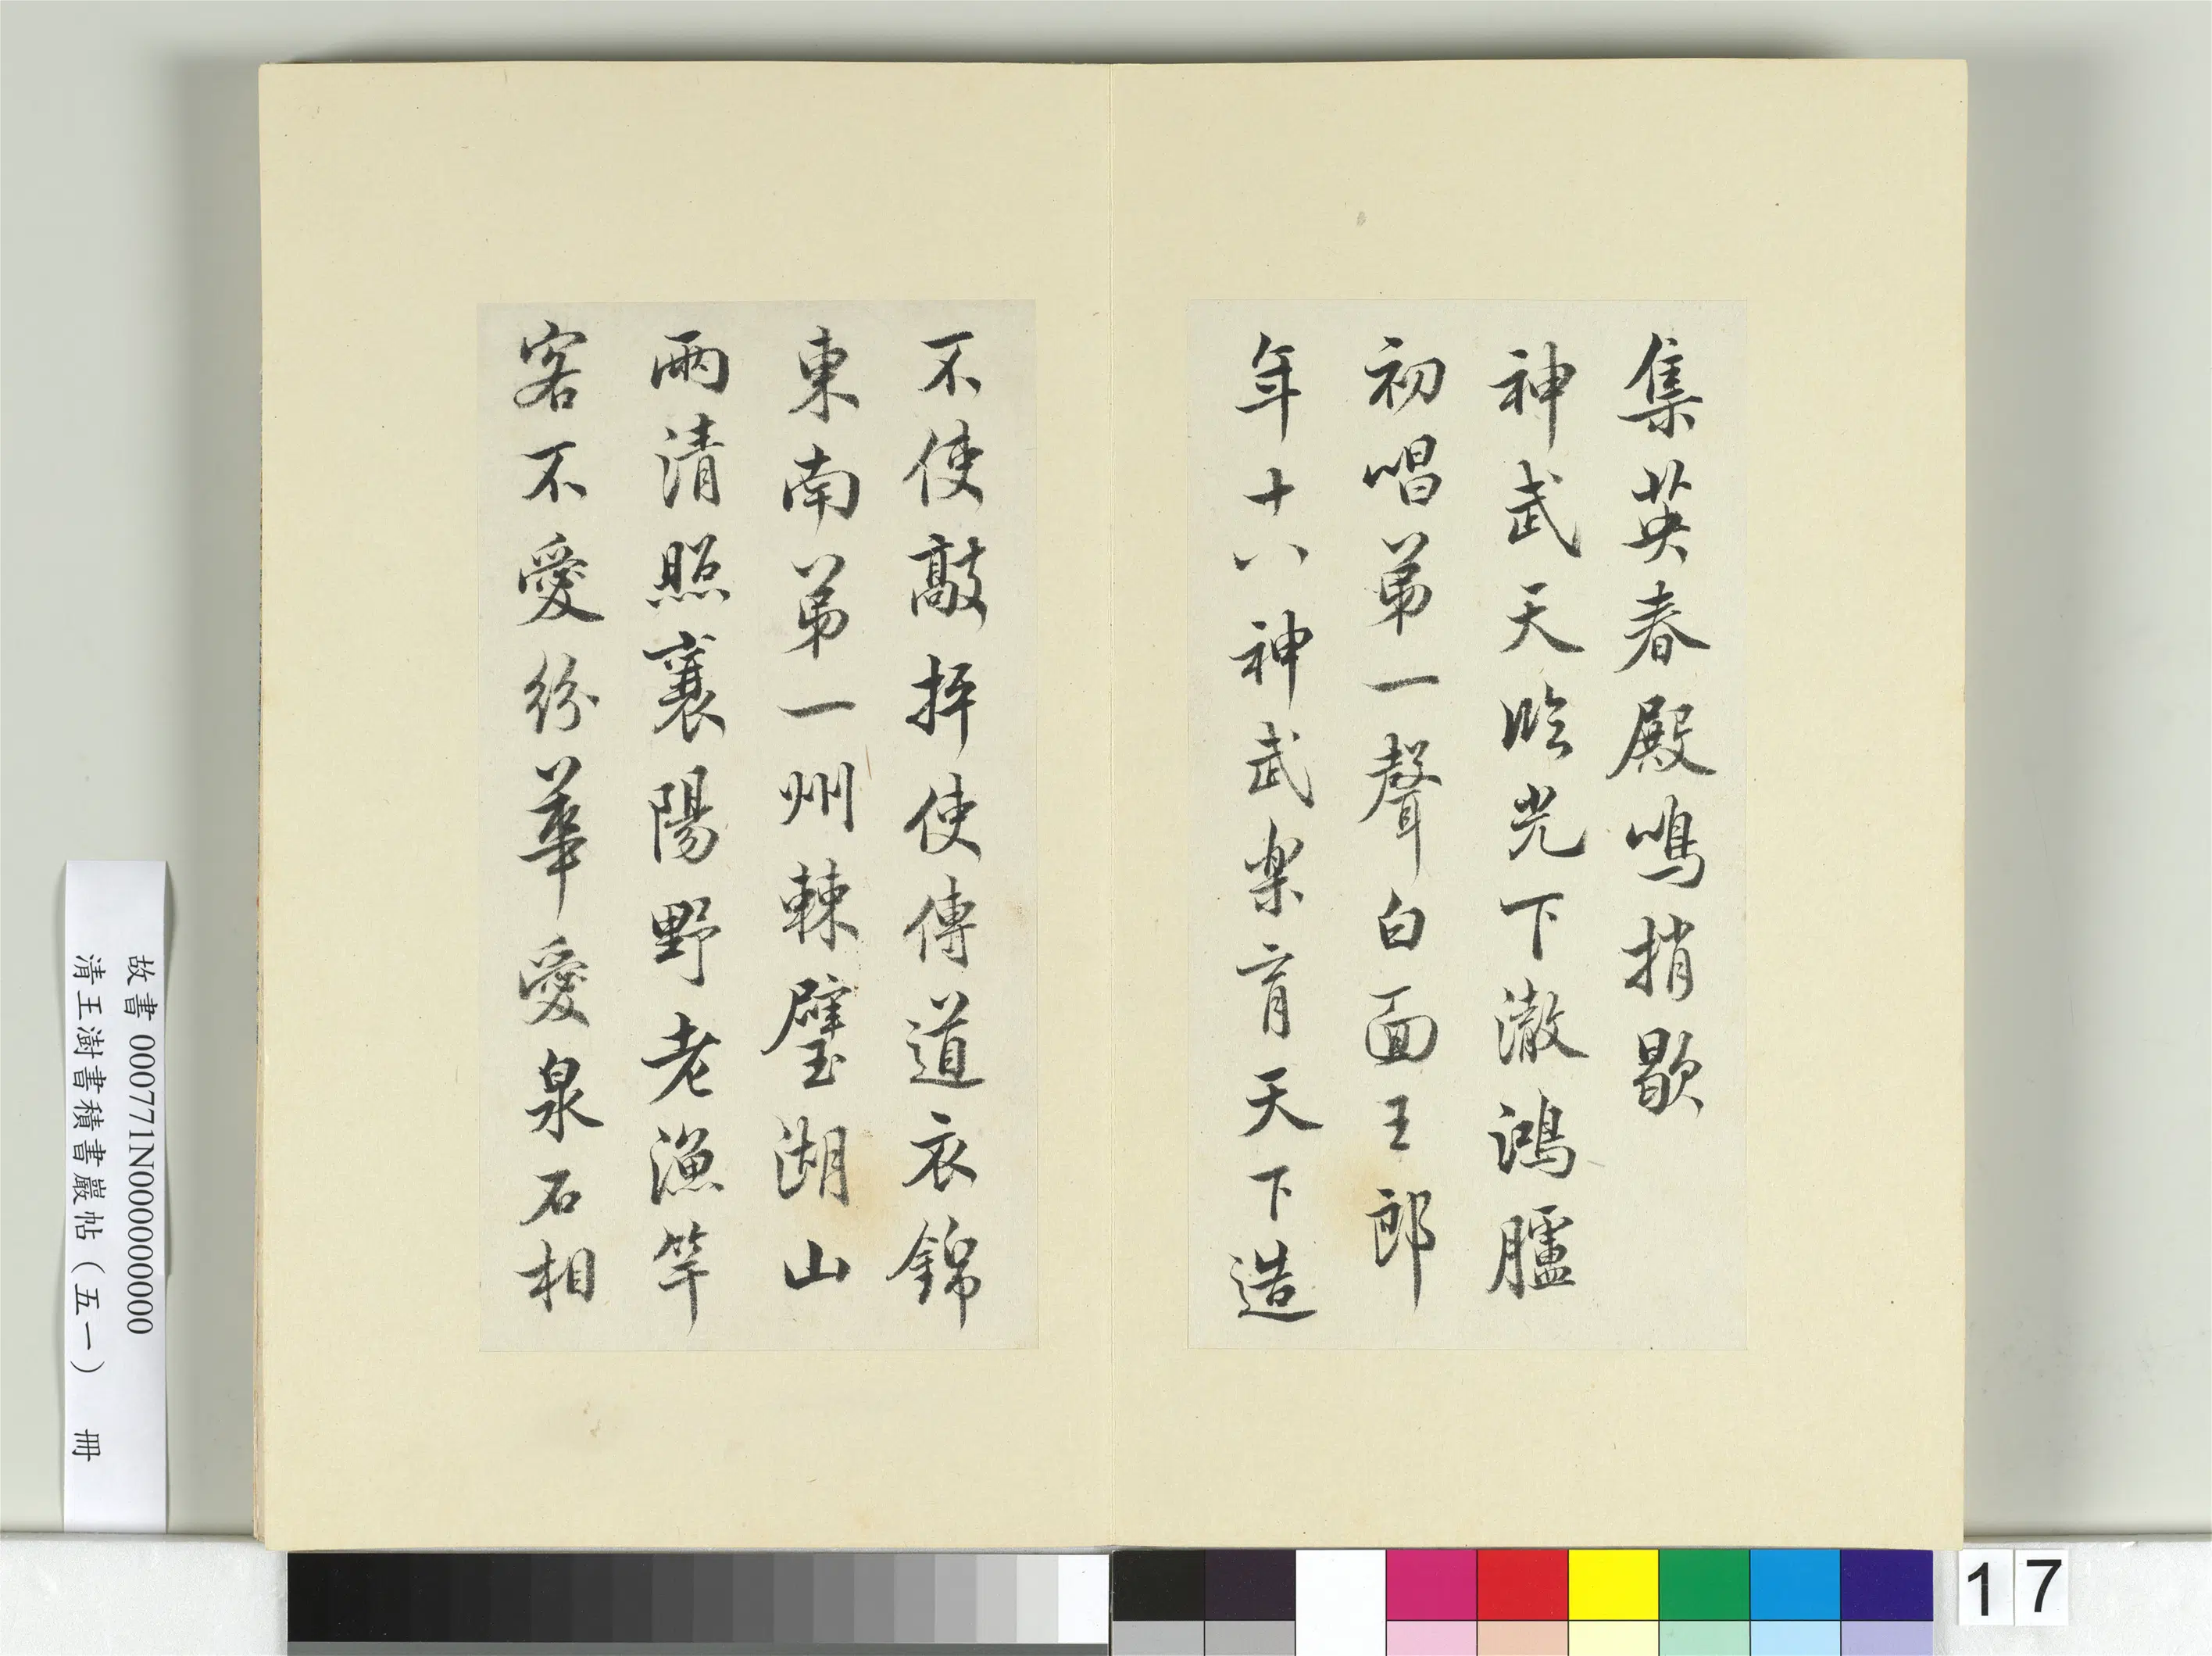 集英春殿鳴捎歇
神武天臨光下澈鴻臚
初唱第一聲白面王郎
年十八神武樂育天下造
不使敲抨使傳道衣錦
東南第一州棘璧湖山
兩清照襄陽野老漁竿
客不愛紛華愛泉石相
故書 000771N000000000
清王澍書積書巖帖（五一） 冊
17